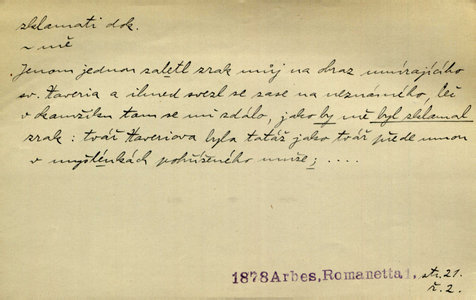 zklamati dok.
~ mě
.Jenom jednou zaletl zrak můj na obraz umírajícího
sv. Xaveria a ihned svezl se zase na neznámého, leč
v okamžiku tom se mi zdálo, jako by mě byl zklamal
zrak: tvář Xaveriova byla tatáž jako tvář přede mnou
v myšlénkách pohříženého muže; ....
1878 Arbes, Romanetta 1. str. 21.
ř. 2.